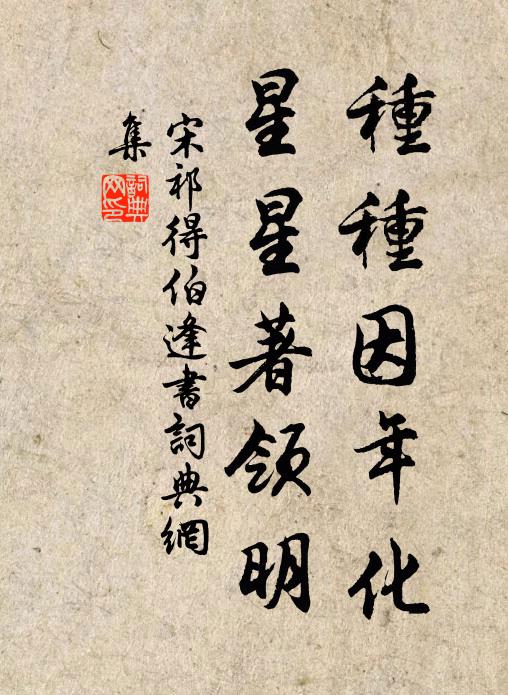 種種因年化
星星著領明
宋祁得伯逢書詞典網
集
詞典
网印